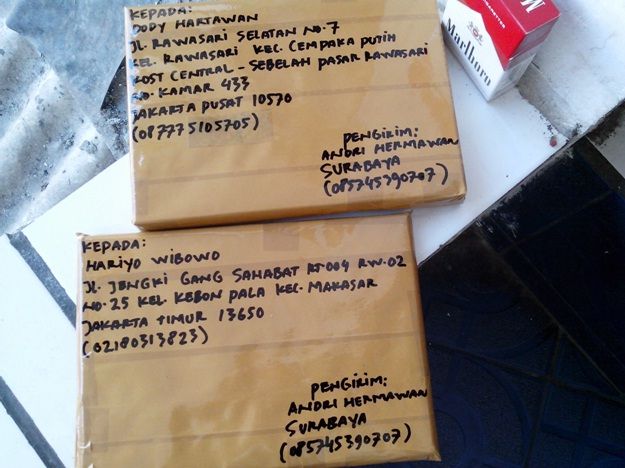 KEPADA:
DODY HARTAWAN
JL. RAWASARI SELATAN NO. 7
KEL. RAWASARI KEC. CEMPAKA PUTIH
KOST CENTRAL - SEBELAH PASAR RAWASARI
NO. KAMAR 433
JAKARTA PUSAT 10570
(087775105705)
PENGIRIM:
ANDRI HERMAWAN
SURABAYA
(085745390707)
Marlboro
KEPADA:
HARIYO WIBOWO
JL. JENGKI GANG SAHABAT RT.004 RW.02
NO.25 KEL. KEBON PALA KEC. MAKASAR
JAKARTA TIMUR 13650
(02180313823)
PENGIRIM:
ANDRI HERMAWAN
SURABAYA
(085745390707)